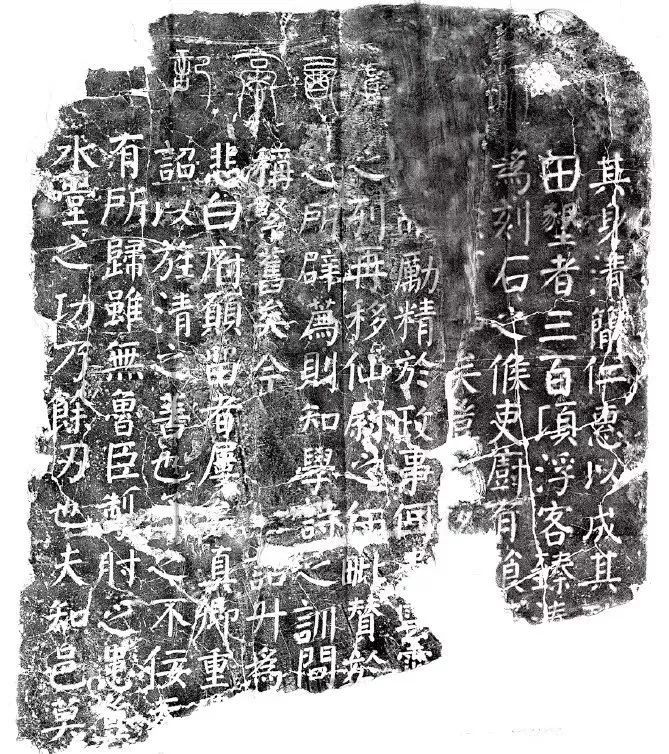 其身清簡仁惠以成其
田墾者三百頃浮客臻
為刻石之候吏廚有食
矣豈
勵精於政事
之列再移仙尉之任毗贊於
之所辟薦則知學詩之訓間
稱賢舊矣今升為
悲白府願留者屢矣真卿重
詔以旌清之善也之不佞
有所歸雖無魯臣掣肘之患豈
水之功乃餘刃也夫知邑莫